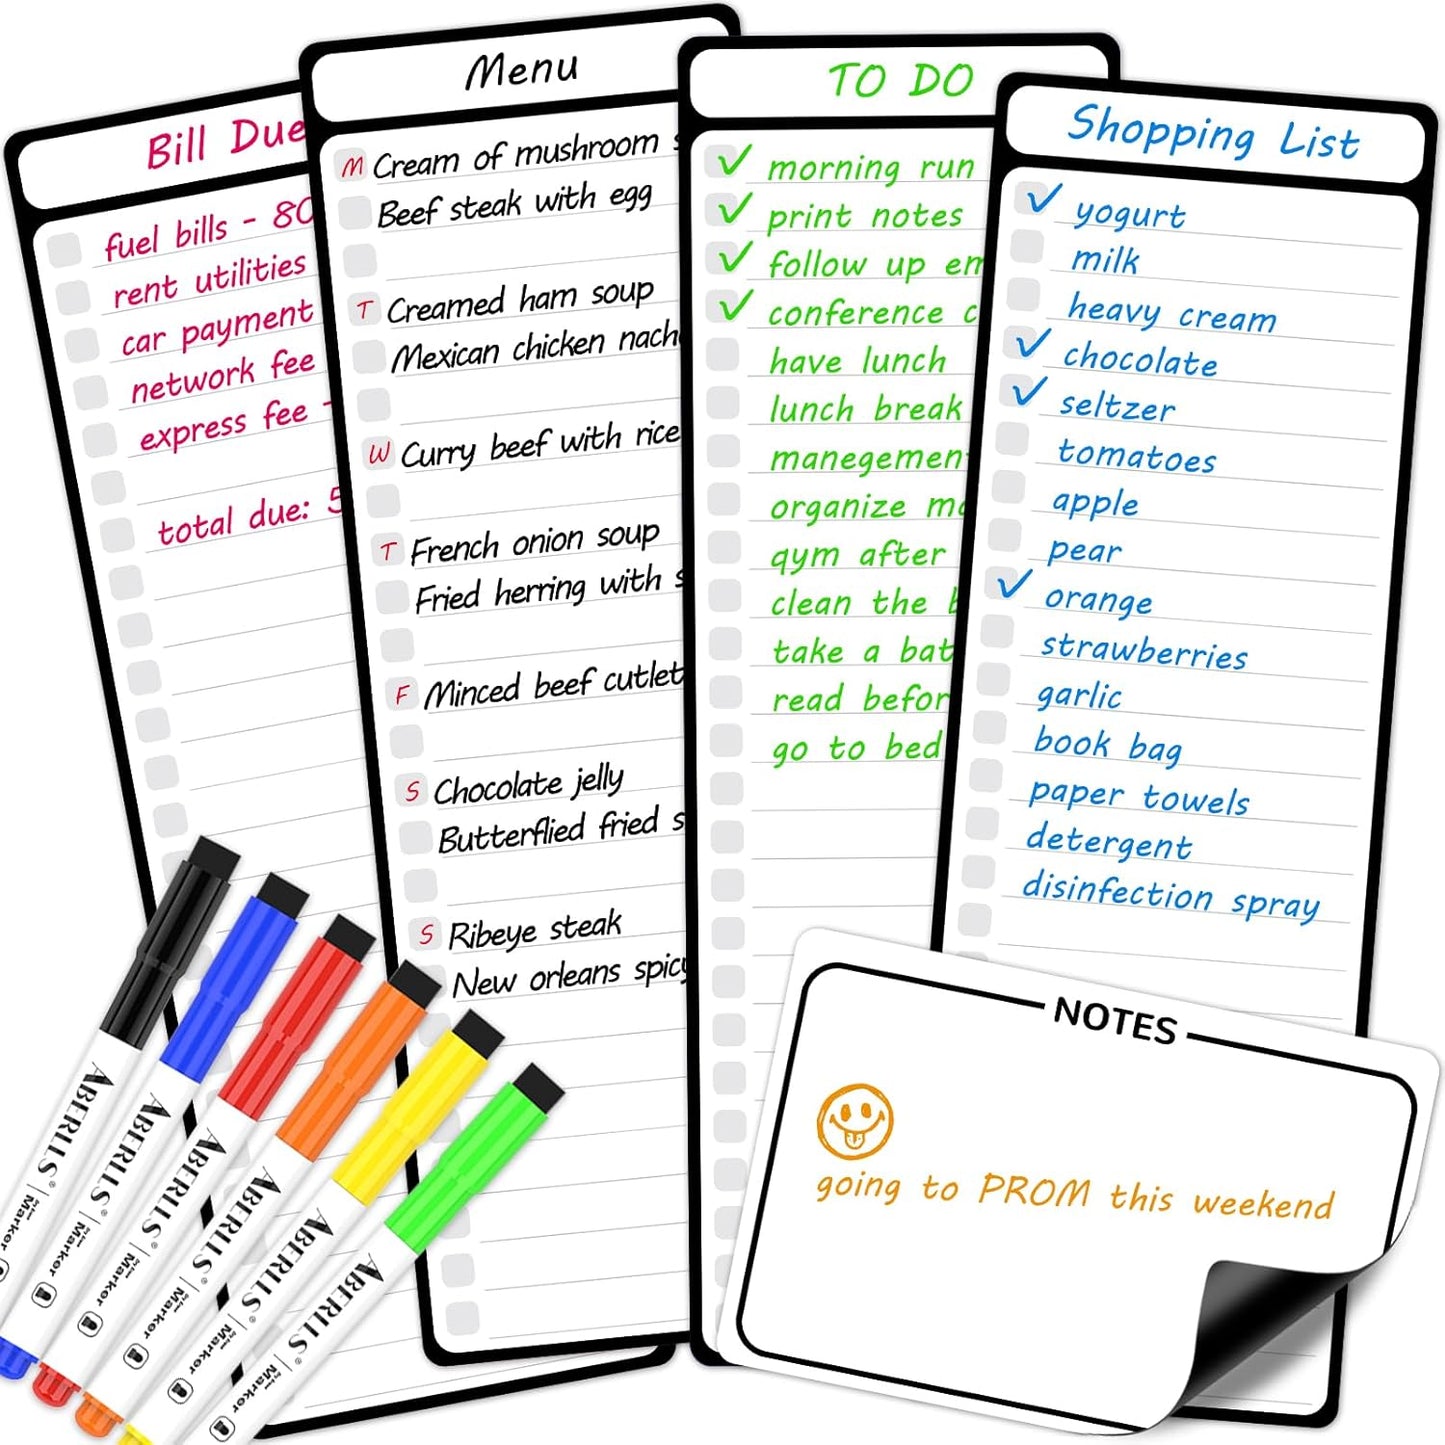 Bill Due
fuel bills - 80
rent utilities
car payment
network fee
express fee -
total due:
Menu
M Cream of mushroom
Beef steak with egg
T Creamed ham soup
Mexican chicken
W Curry beef with rice
T French onion soup
Fried herring with
F Minced beef cutlet
S Chocolate jelly
Butterflied fried
S Ribeye steak
New orleans spicy
TO DO
✓ morning run
✓ print notes
✓ follow up
✓ conference
have lunch
lunch break
manegement
organize
qym after
clean the
take a
read before
go to bed
Shopping List
✓ yogurt
milk
heavy cream
✓ chocolate
✓ seltzer
tomatoes
apple
pear
✓ orange
strawberries
garlic
book bag
paper towels
detergent
disinfection spray
NOTES
going to PROM this weekend
ABERLLS® Dry Erase Marker
ABERLLS® Dry Erase Marker
ABERLLS® Dry Erase Marker
ABERLLS® Dry Erase Marker
ABERLLS® Dry Erase Marker
ABERLLS® Dry Erase Marker